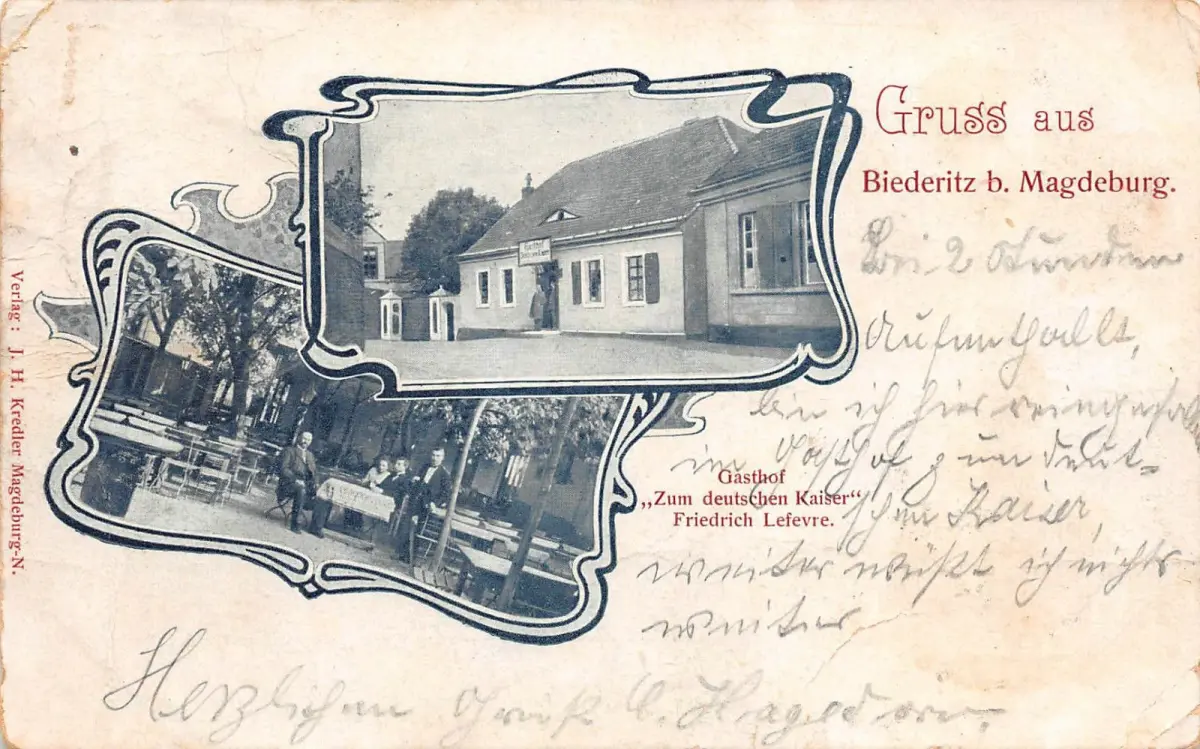 Gruss aus
Biederitz b. Magdeburg.
Bei 2 Stunden
Aufenthallt,
bin ich hier reingefa
im Gasthof zum deut-
schen Kaiser,
weiter wüßt ich nichts
weiter
Gasthof
„Zum deutschen Kaiser“
Friedrich Lefevre.
Herzlichen Gruß C. Hagedorn.
Verlag: J. H. Kredler Magdeburg-N.
Gasthof